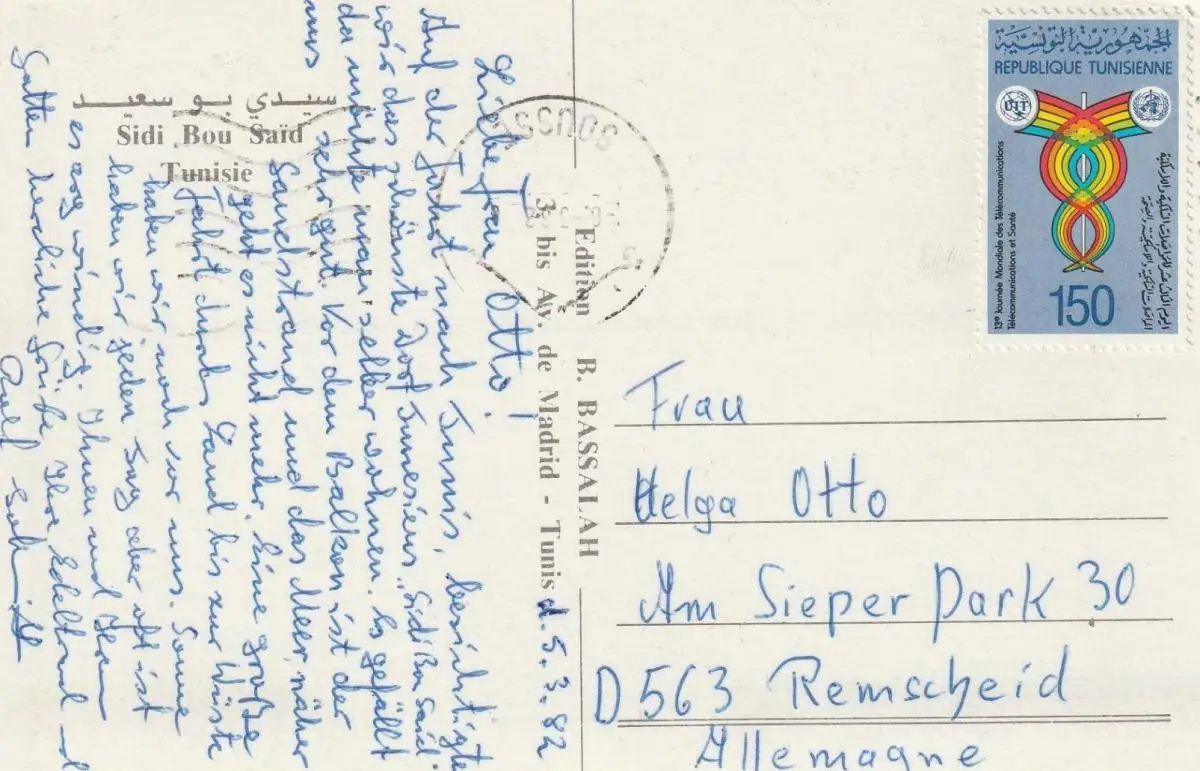 سيدي بو سعيد
Sidi Bou Saïd
Tunisie
Edition B. BASSALAH
3 bis Av. de Madrid - Tunis
SOUSSE
d. 5. 3. 82
Liebe Frau Otto!
Auf der Fahrt nach Tunis, besichtigte
wir das schönste Dorf Tunesiens, "Sidi Bo said"
da möchte man selber wohnen. Es gefällt
uns sehr gut. Vor dem Balkon ist der
Sandstrand und das Meer, näher
geht es nicht mehr. Eine große
Fahrt durchs Land bis zur Wüste
haben wir noch vor uns. Sonne
haben wir jeden Tag aber oft ist
es arg windig. Ihnen und Ihrem
Gatten herzliche Grüße Ihre Edeltraud
الجمهورية التونسية
REPUBLIQUE TUNISIENNE
UIT
13e Journée Mondiale des Télécommunications
Télécommunications et Santé
150
Frau
Helga Otto
Am Sieper Park 30
D563 Remscheid
Allemagne